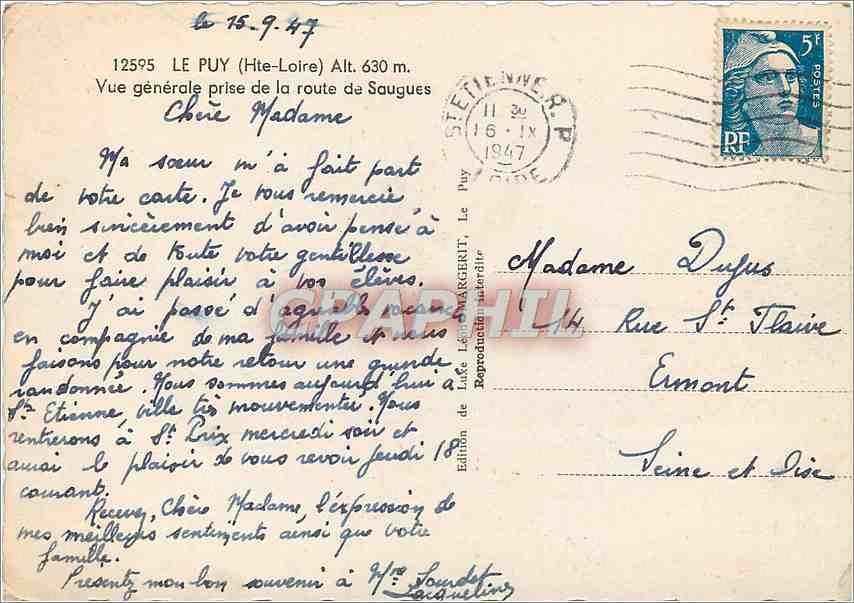 le 15-9-47
12595 LE PUY (Hte-Loire) Alt. 630 m.
Vue générale prise de la route de Saugues
Chère Madame
Ma sœur m'à fait part
de votre carte. Je vous remercie
bien sincèrement d'avoir pensé à
moi et de toute votre gentillesse
pour faire plaisir à vos élèves.
J'ai passé d'agréables vacances
en compagnie de ma famille et nous
faisons pour notre retour une grande
randonnée. Nous sommes aujourd'hui à
St Etienne, ville très mouvementée. Nous
rentrerons à St Prix mercredi soir et
aurai le plaisir de vous revoir jeudi 18
courant.
Recevez, Chère Madame, l'expression de
mes meilleurs sentiments ainsi que votre
famille.
Présentez mon bon souvenir à Mme Lourdet
Jacqueline
Edition de Luxe Léon MARGERIT, Le Puy
Reproduction interdite
ST ETIENNE R. P.
11 30
16 - IX
1947
LOIRE
5F
POSTES
RF
Madame Dufus
14 Rue St Flaive
Ermont
Seine et Oise
CPAPHIL